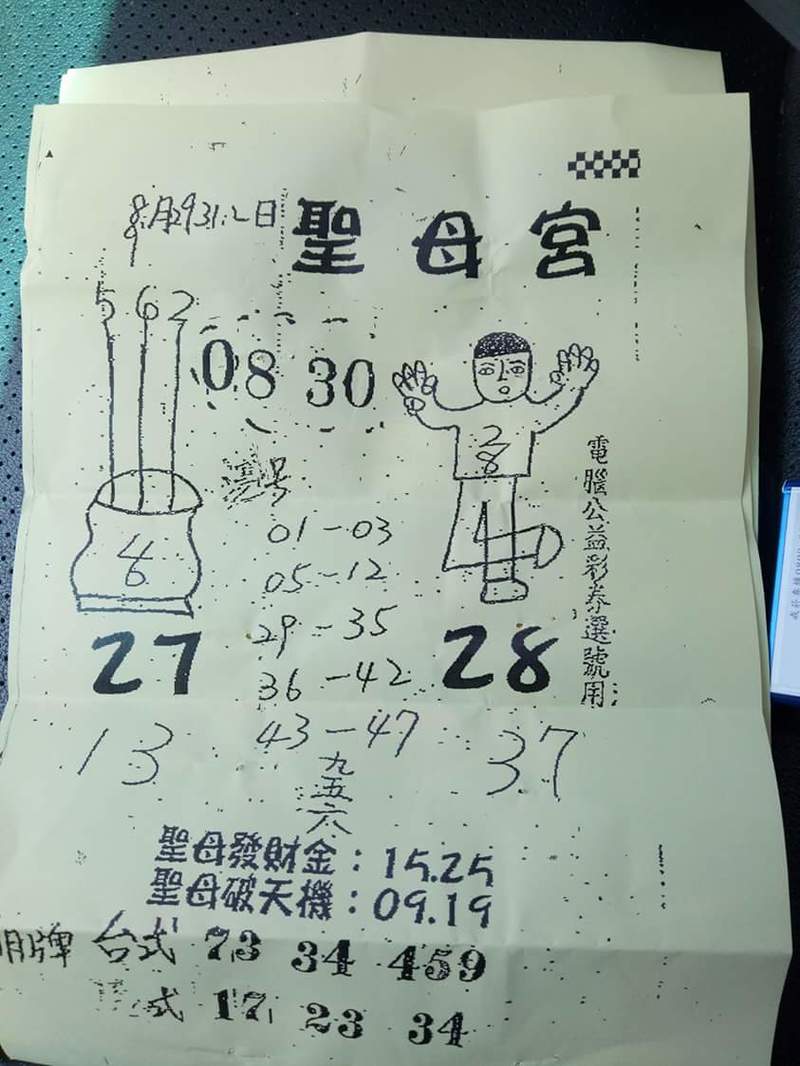 8月29.31.2日
9
聖母宮
5 6 2
08 30
28
電腦公益彩券選號用
號
01-03
05-12
46
29-35
27
28
36-42
43-47
13
37
九五六
聖母發財金：15.25
聖母破天機：09.19
明牌 台式 73 34 459
式 17 23 34